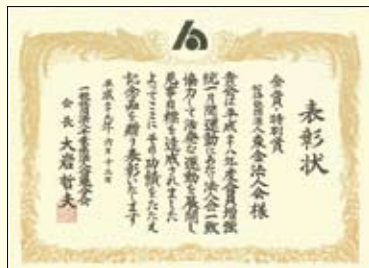 表彰状
金賞・特別賞
公益社団法人東金法人会様
貴会は平成二十八年度会員増強
統一月間運動にあたり法人会一致
協力して活発な運動を展開し
見事目標を達成されました
よってここにその功績をたたえ
記念品を贈り表彰いたします
平成二十九年六月十三日
会長 大岩哲夫